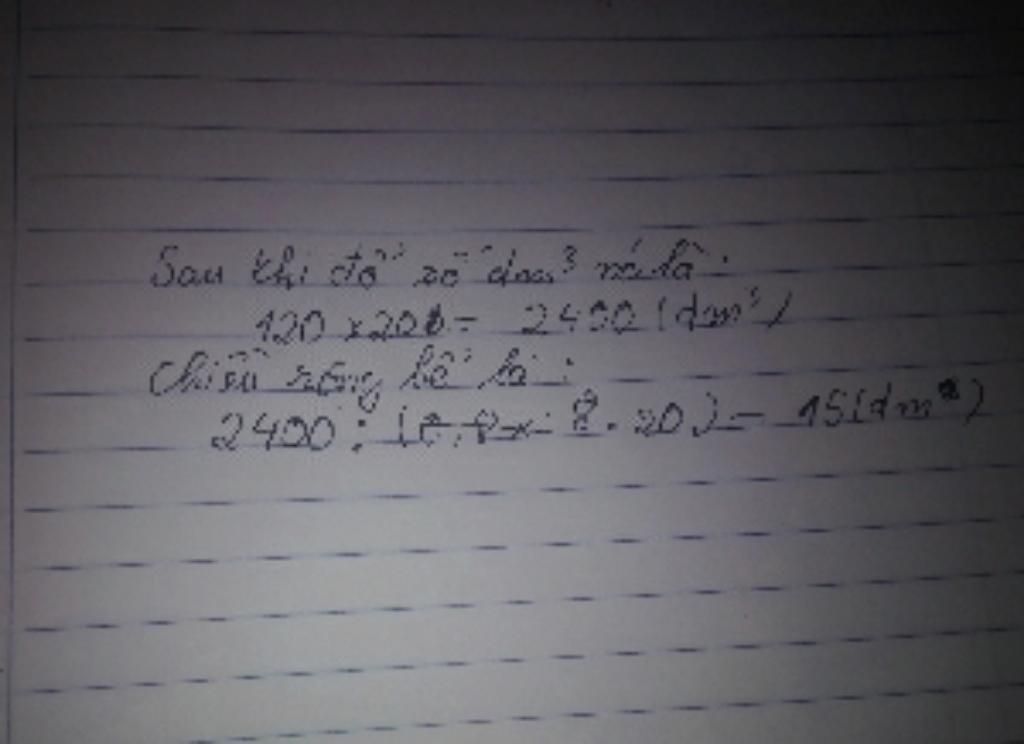 Sau khi đổ số dm³ nó là :
120 x 20 = 2400 (dm³)
Chiều rộng bể là :
2400 : ( 8 . 20 ) = 15 (dm)